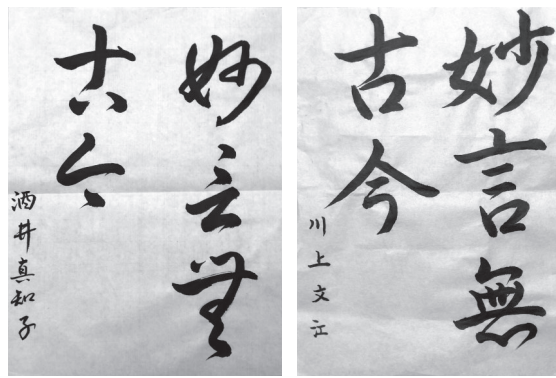 妙言無
古今
酒井真知子
妙言無
古今
川上文江